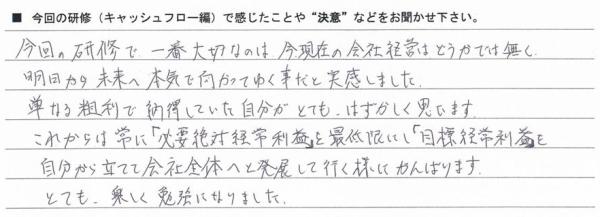 ■ 今回の研修（キャッシュフロー編）で感じたことや“決意”などをお聞かせ下さい。
今回の研修で一番大切なのは今現在の会社経営はどうかでは無く、
明日から未来へ本気で向かってゆく事だと実感しました。
単なる粗利で納得していた自分がとても、はずかしく思たます。
これからは常に「必要絶対経常利益」を最低限にし「目標経常利益」を
自分から立てて会社全体へと発展して行く様にがんばります。
とても、楽しく勉強になりました。